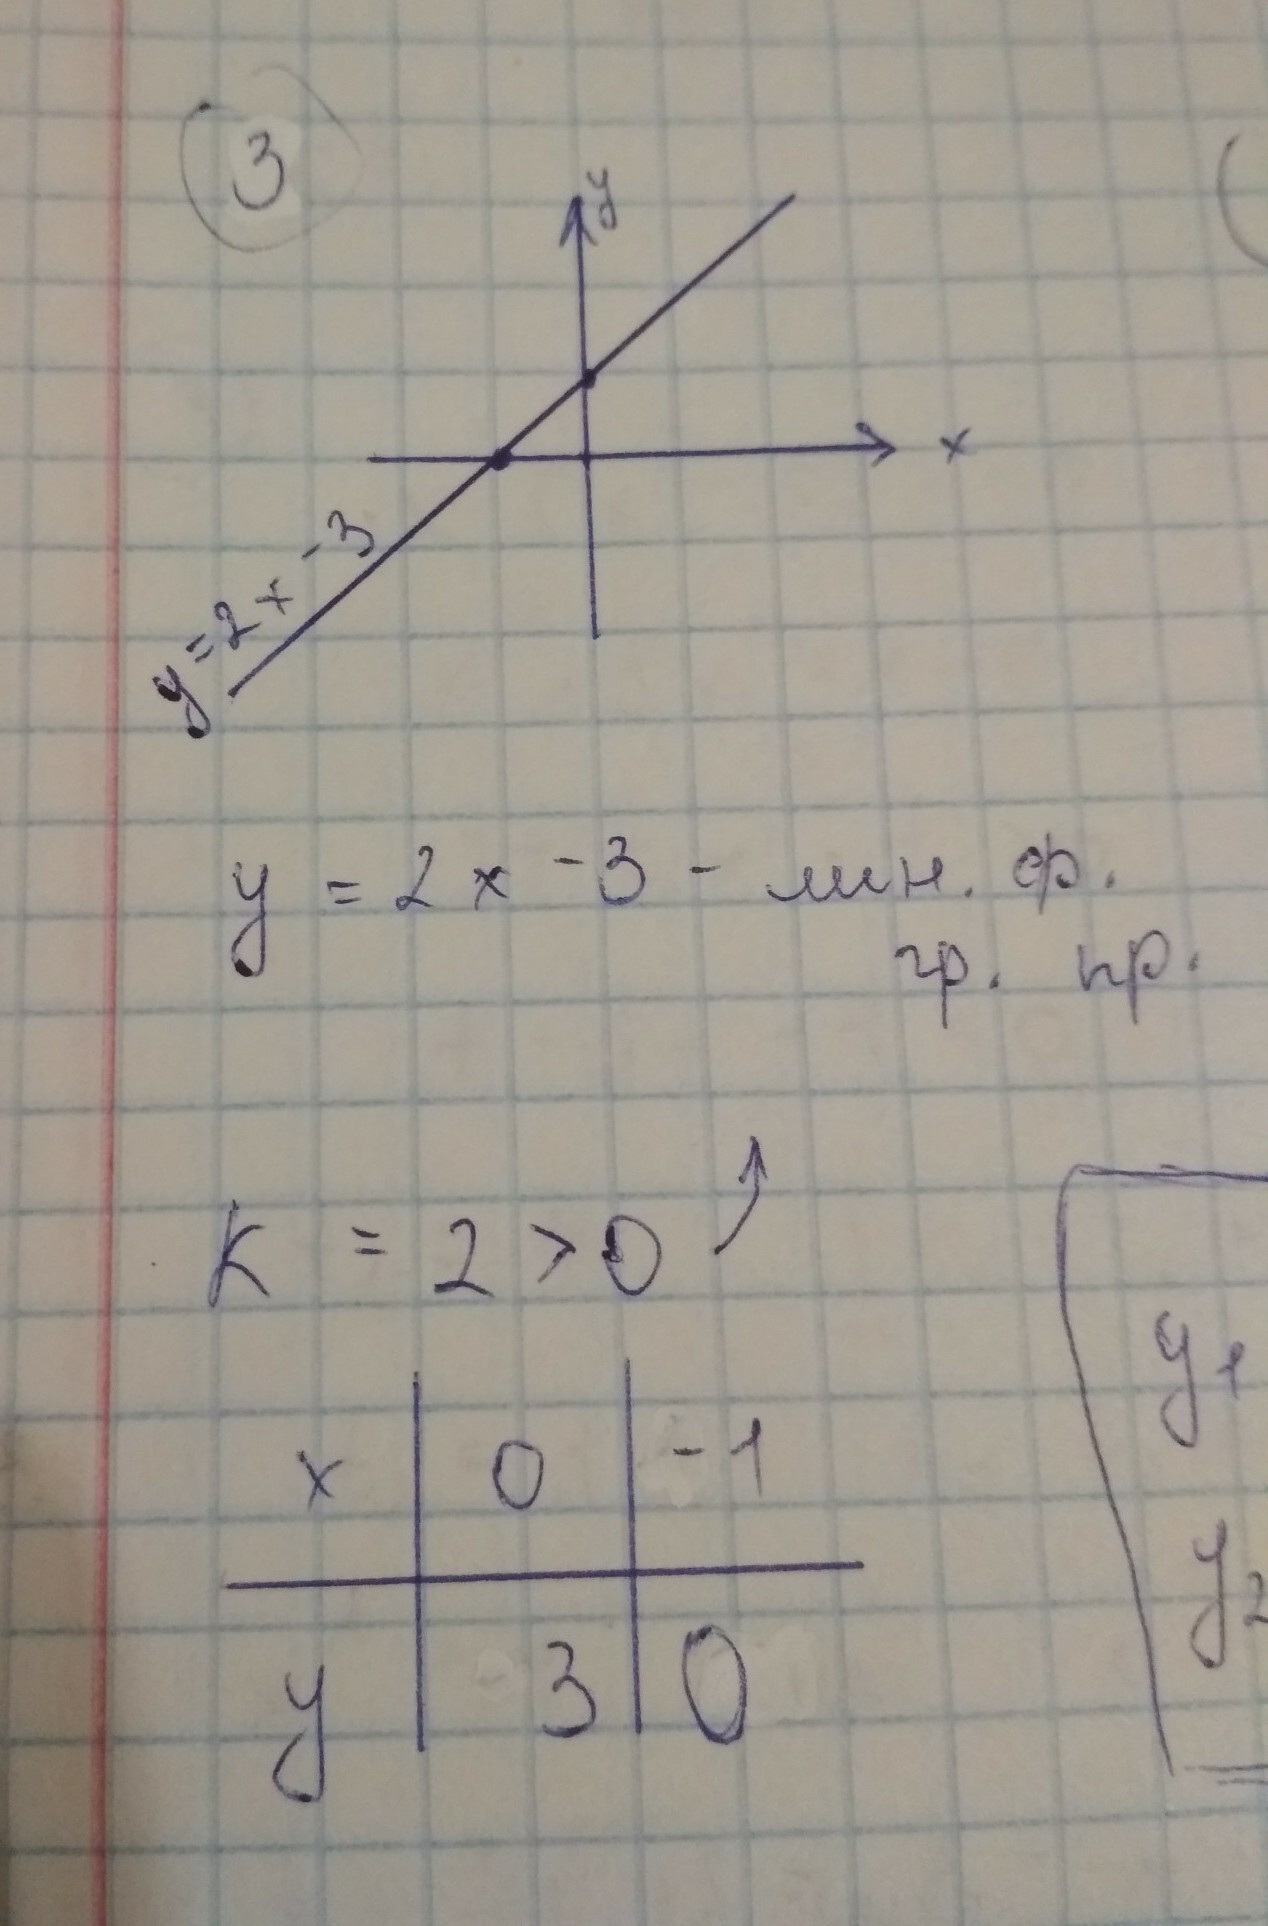 3
y
x
y = 2x - 3
y = 2x - 3 - лин. ф.
гр. пр.
k = 2 > 0
x 0 -1
y 3 0
y₁
y₂